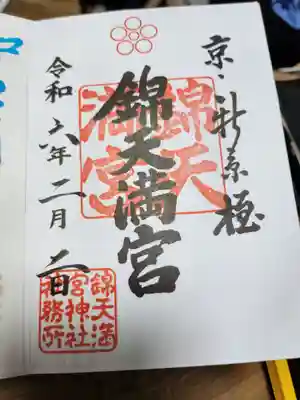 京・新京極
錦天満宮
錦天
満宮
令和六年二月二日
錦天満
宮神社
務所